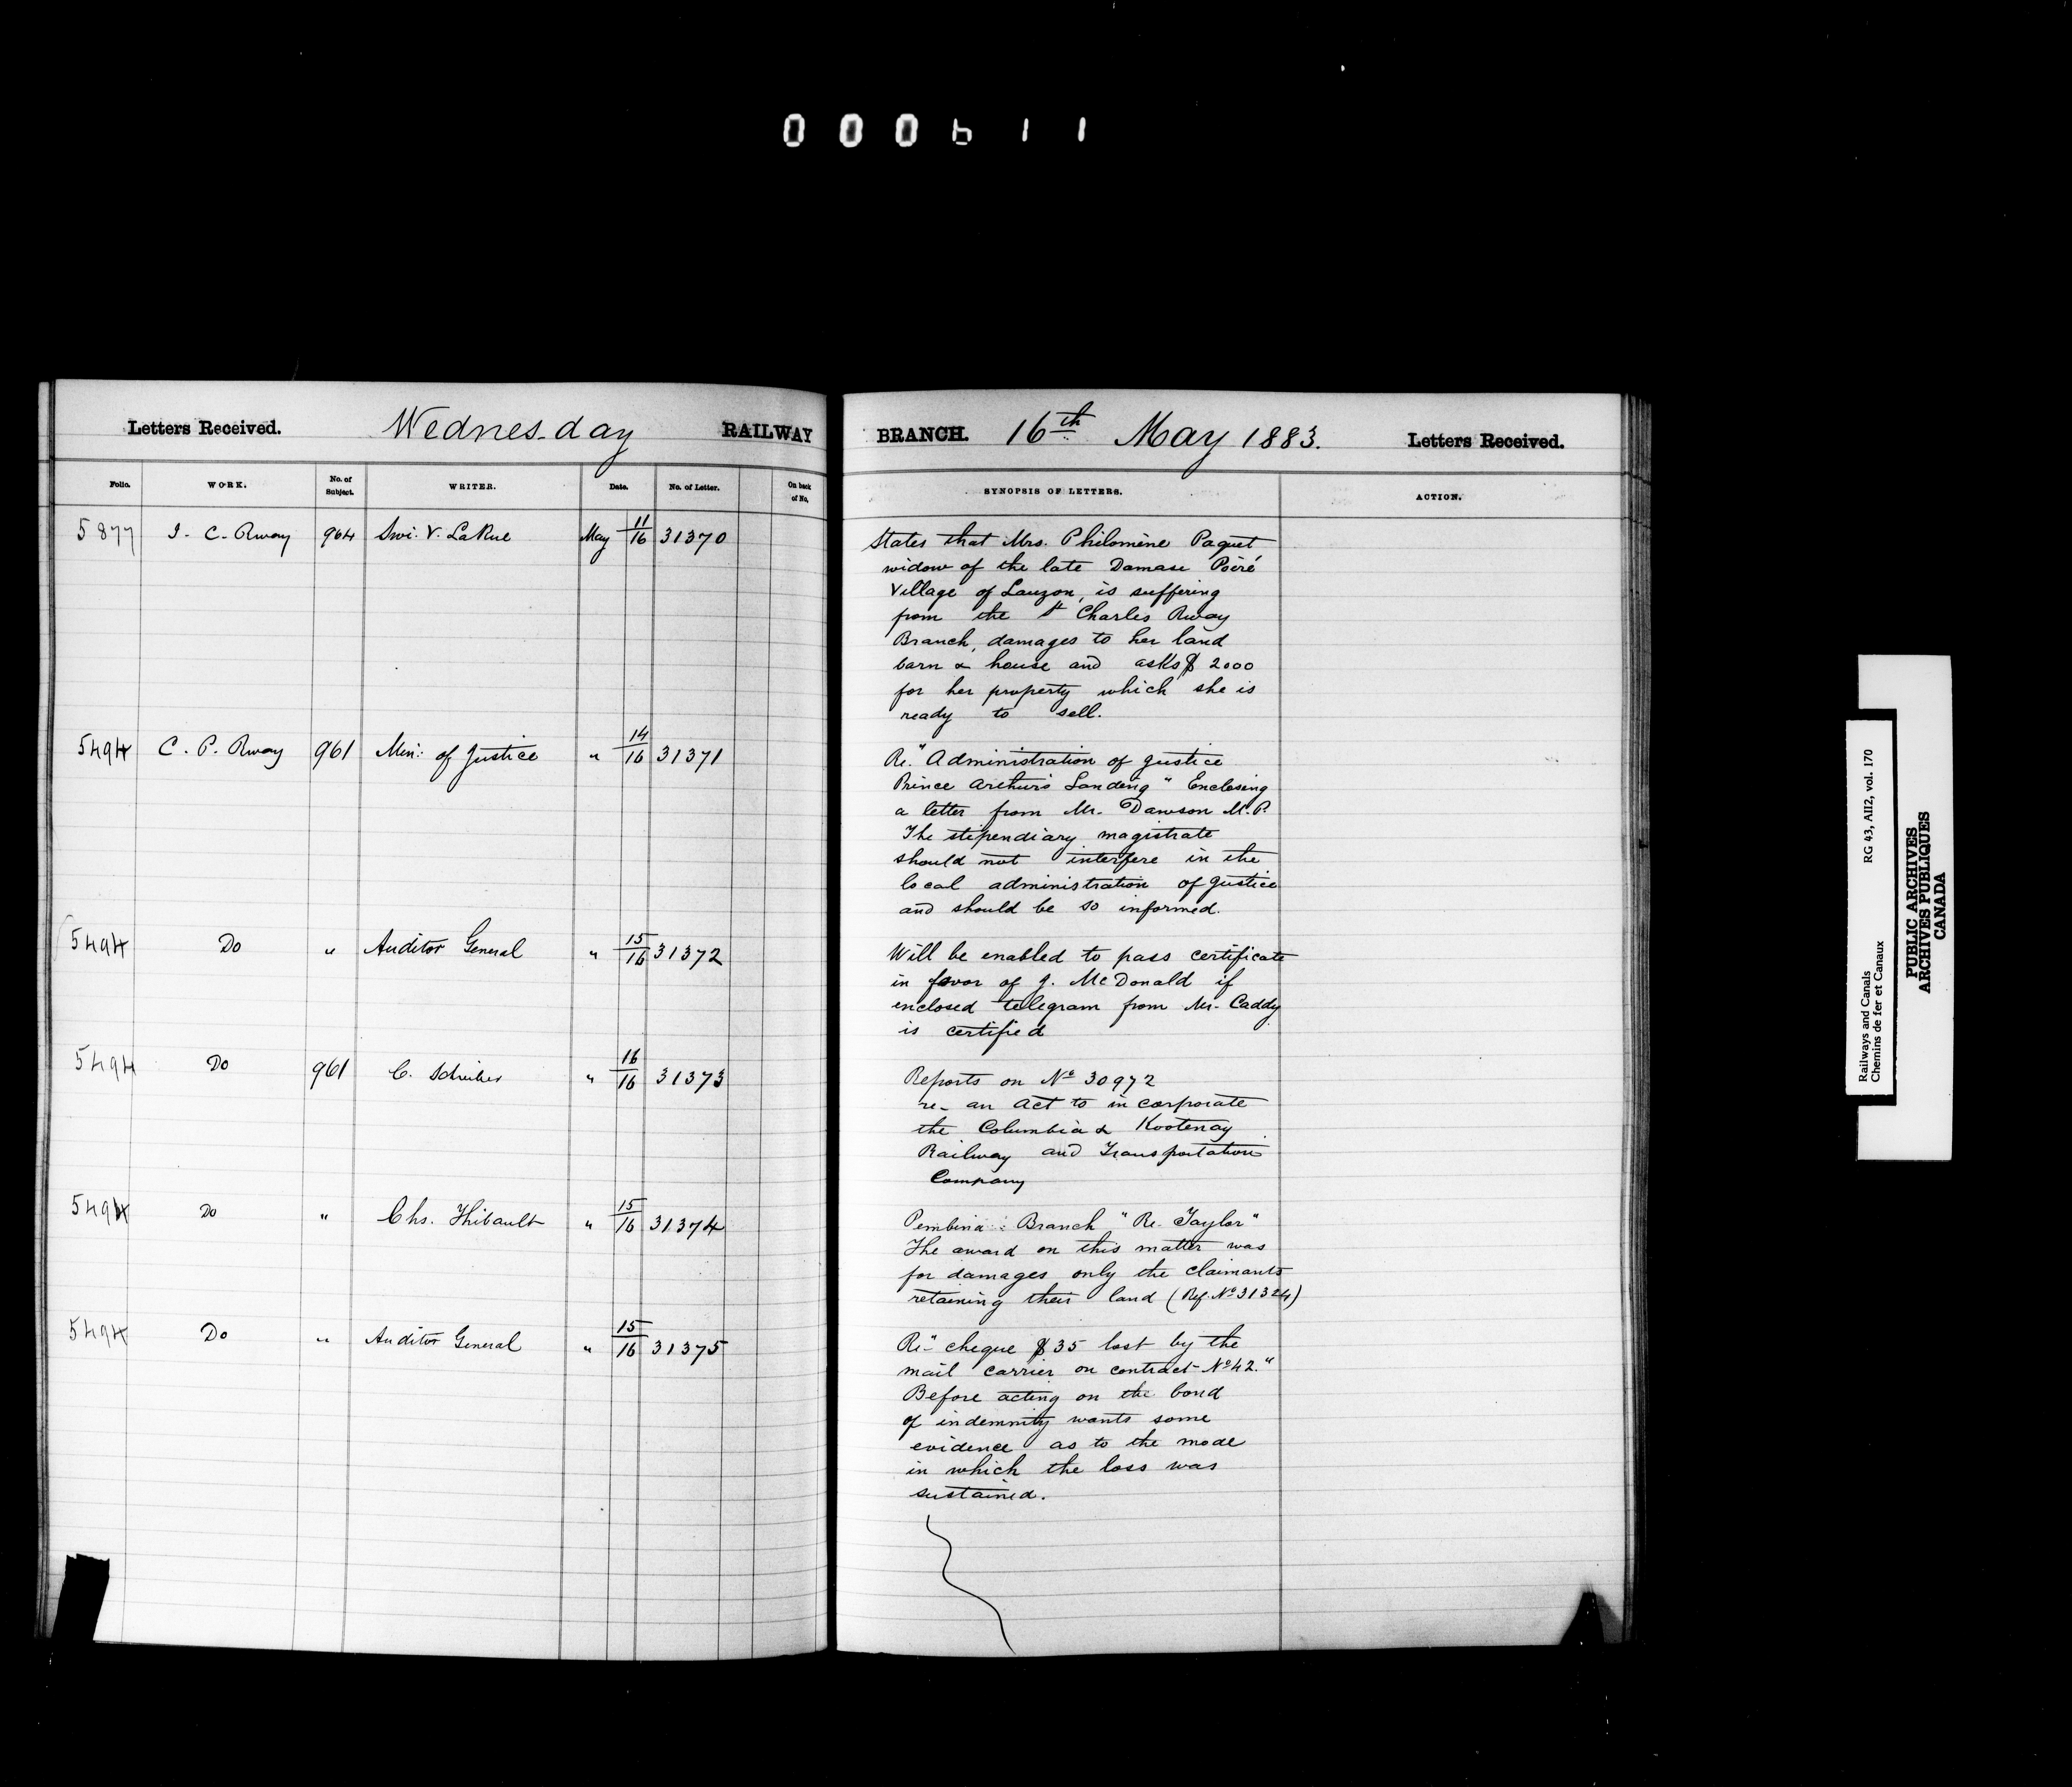 000611
Letters Received. Wednesday RAILWAY BRANCH. 16th May 1883. Letters Received.
Folio. WORK. No. of Subject. WRITER. Date. No. of Letter. On back of No. SYNOPSIS OF LETTERS. ACTION.
5877 I. C. Rway 964 V. LaRue May 11/16 31370
States that Mrs. Philomène Paquet
widow of the late Damase Poiré
Village of Lauzon, is suffering
from the St Charles Rway
Branch, damages to her land
barn & house and asks $ 2000
for her property which she is
ready to sell.
5494 C. P. Rway 961 Min: of Justice " 14/16 31371
Re. "Administration of justice
Prince Arthur's Landing" Enclosing
a letter from Mr. Dawson M.P.
The stipendiary magistrate
should not interfere in the
local administration of justice
and should be so informed.
5494 Do " Auditor General " 15/16 31372
Will be enabled to pass certificate
in favor of J. McDonald if
enclosed telegram from Mr. Caddy
is certified
5494 Do 961 C. Schreiber " 16/16 31373
Reports on No 30972
re- an Act to incorporate
the Columbia & Kootenay
Railway and Transportation
Company
5494 Do " Chs. Thibault " 15/16 31374
Pembina Branch "Re. Taylor"
The award on this matter was
for damages only the claimants
retaining their land (Ref. No 31324)
5494 Do " Auditor General " 15/16 31375
Re- "cheque $35 lost by the
mail carrier on contract No 42."
Before acting on the bond
of indemnity wants some
evidence as to the mode
in which the loss was
sustained.
Railways and Canals RG 43, AII2, vol. 170
Chemins de fer et Canaux
PUBLIC ARCHIVES
ARCHIVES PUBLIQUES
CANADA